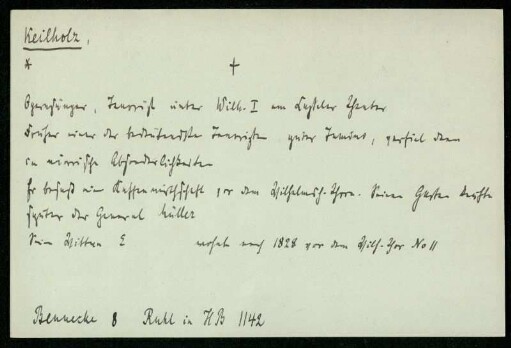 Keilholz,
* †
Opernsänger, Tenorist unter Wilh. I am Casseler Theater
Früher einer der bedeutendsten Tenoristen, guter Tamino, verfiel dann
in närrische Absonderlichkeiten
Er besaß eine Kaffeewirthschaft vor dem Wilhelmsh. Thore. Seinen Garten kaufte
später der General Müller
Seine Wittwe L wohnte noch 1828 vor dem Wilh. Thor No 11
Bennecke 8 Ruhl in HB 1142